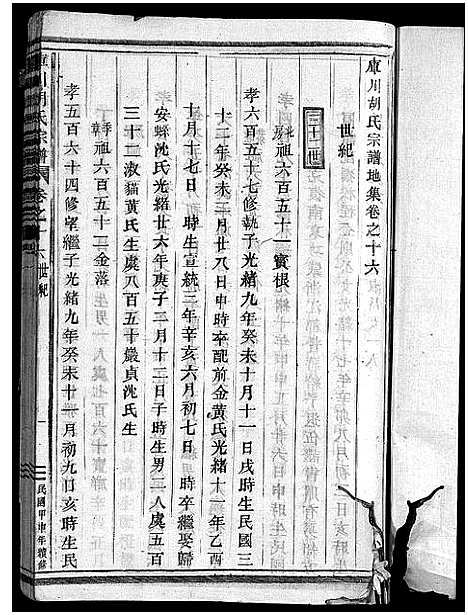 庫川胡氏宗譜地集卷之十六
世紀
三十二世
兆房祖六百五十一寳根
孝六百五十七修執子光緒九年癸未十月十一日戌時生民國三
十二年癸未三月廿八日申時卒配前金黃氏光緒十一年乙酉
十月十七日時生宣統三年辛亥六月初七日時卒繼娶歸
安蜉沈氏光緒廿六年庚子三月十二日子時生男二人虞五百
三十二淑貓黃氏生虞八百五十嚴貞沈氏生
季祖六百五十二金落
孝五百六十四修望繼子光緒九年癸未十一月初九日亥時生民
庫川胡氏宗譜
卷之十六世紀
一
民國甲申年續修